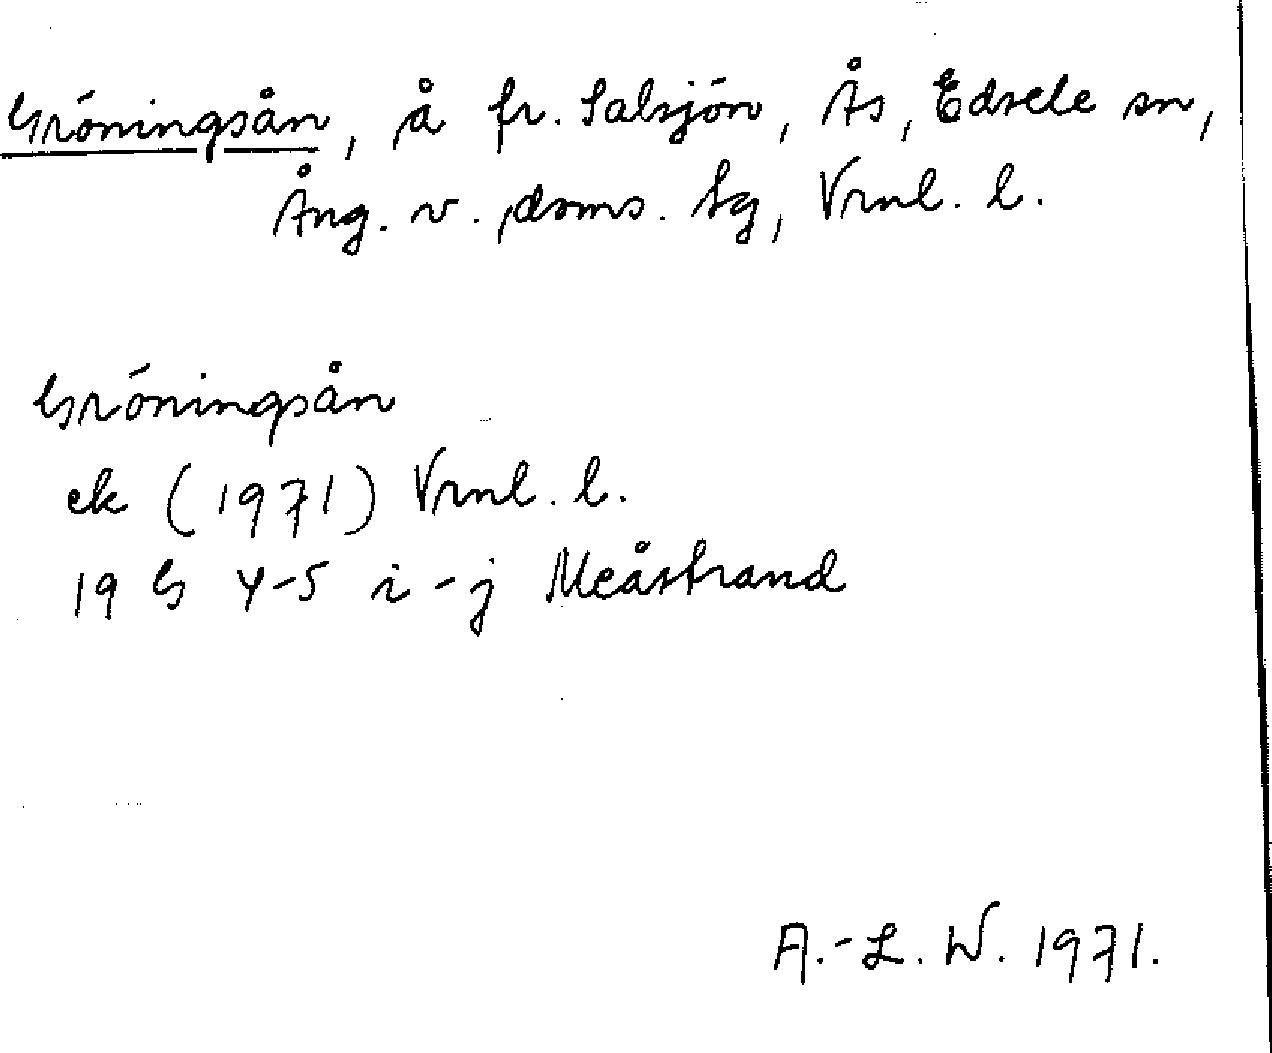 Gröningsån, å fr. Salsjön, Ås, Edsele sn,
Ång. v. doms. tg, Vrnl. l.
Gröningsån
ek (1971) Vrnl. l.
19 G 4-5 i-j Meåstrand
A.-L. W. 1971.